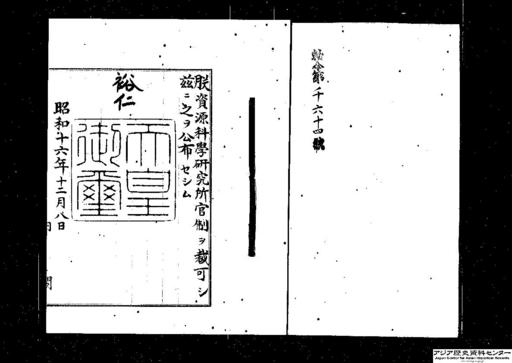 勅令第千六十四號
朕資源科學研究所官制ヲ裁可シ
茲ニ之ヲ公布セシム
裕仁
天皇
御璽
昭和十六年十二月八日
内閣
アジア歴史資料センター
Japan Center for Asian Historical Records